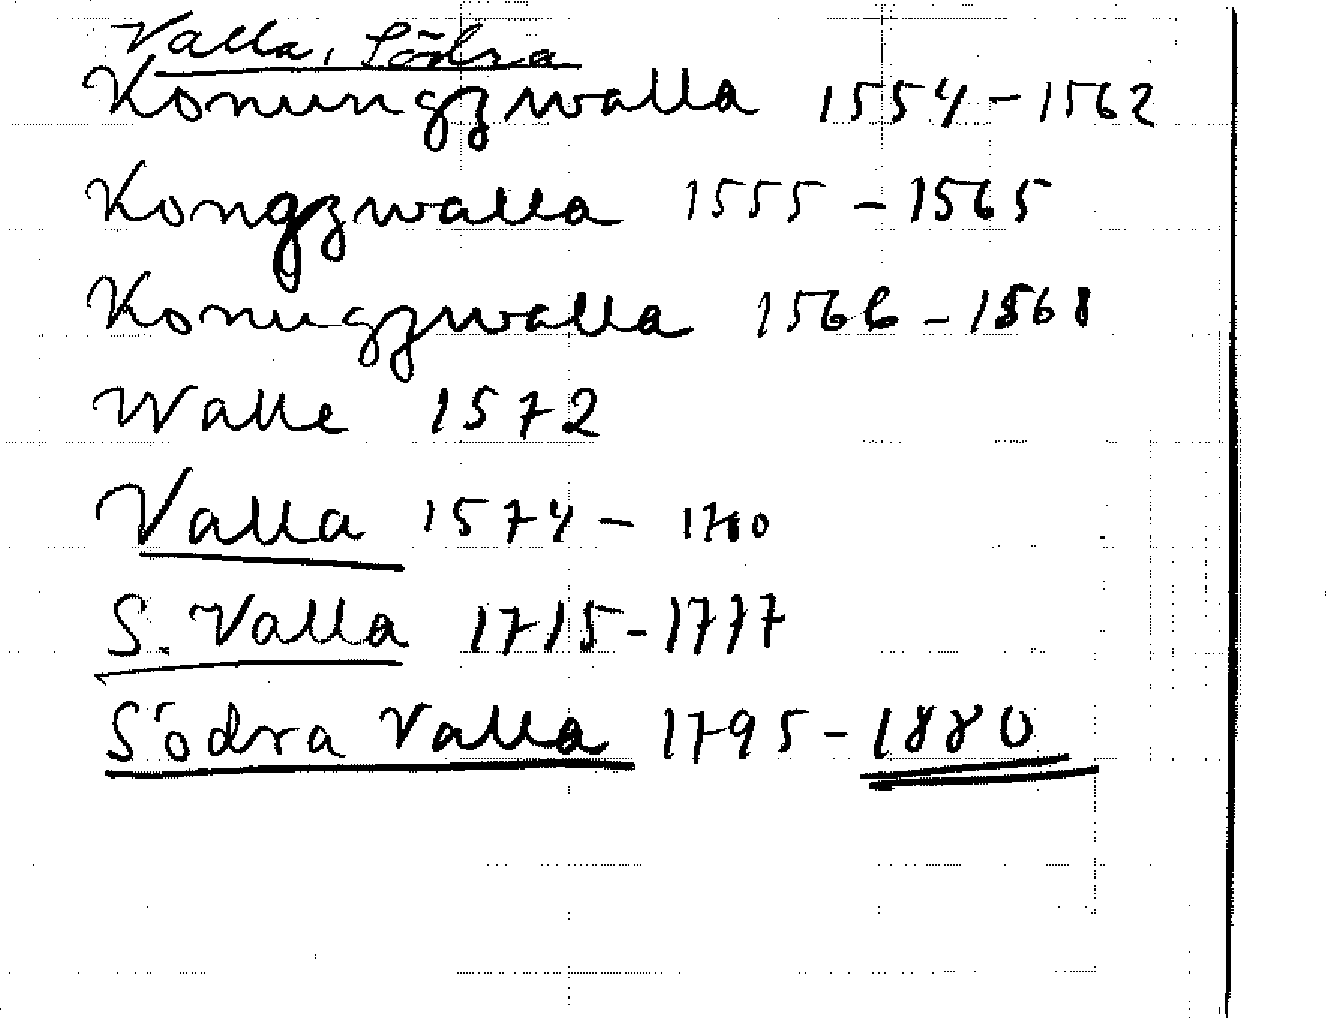 Valla, Södra
Konungzwalla 1554-1562
Kongzwalla 1555-1565
Konugzwalla 1566-1568
Walle 1572
Valla 1574-
S. Valla 1715-1777
Södra Valla 1795-1880